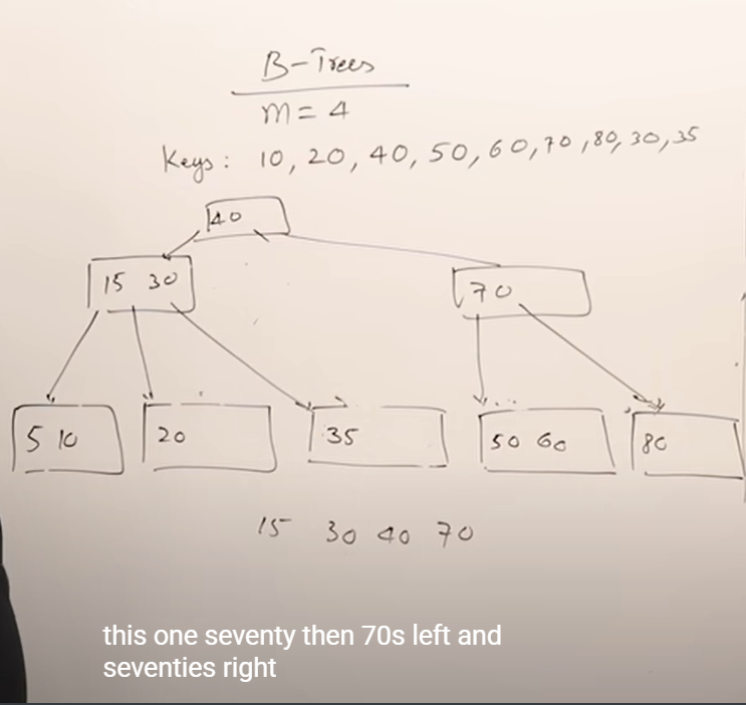 B-Trees
m = 4
Keys: 10, 20, 40, 50, 60, 70, 80, 30, 35
40
15 30
70
5 10
20
35
50 60
80
15 30 40 70
this one seventy then 70s left and
seventies right